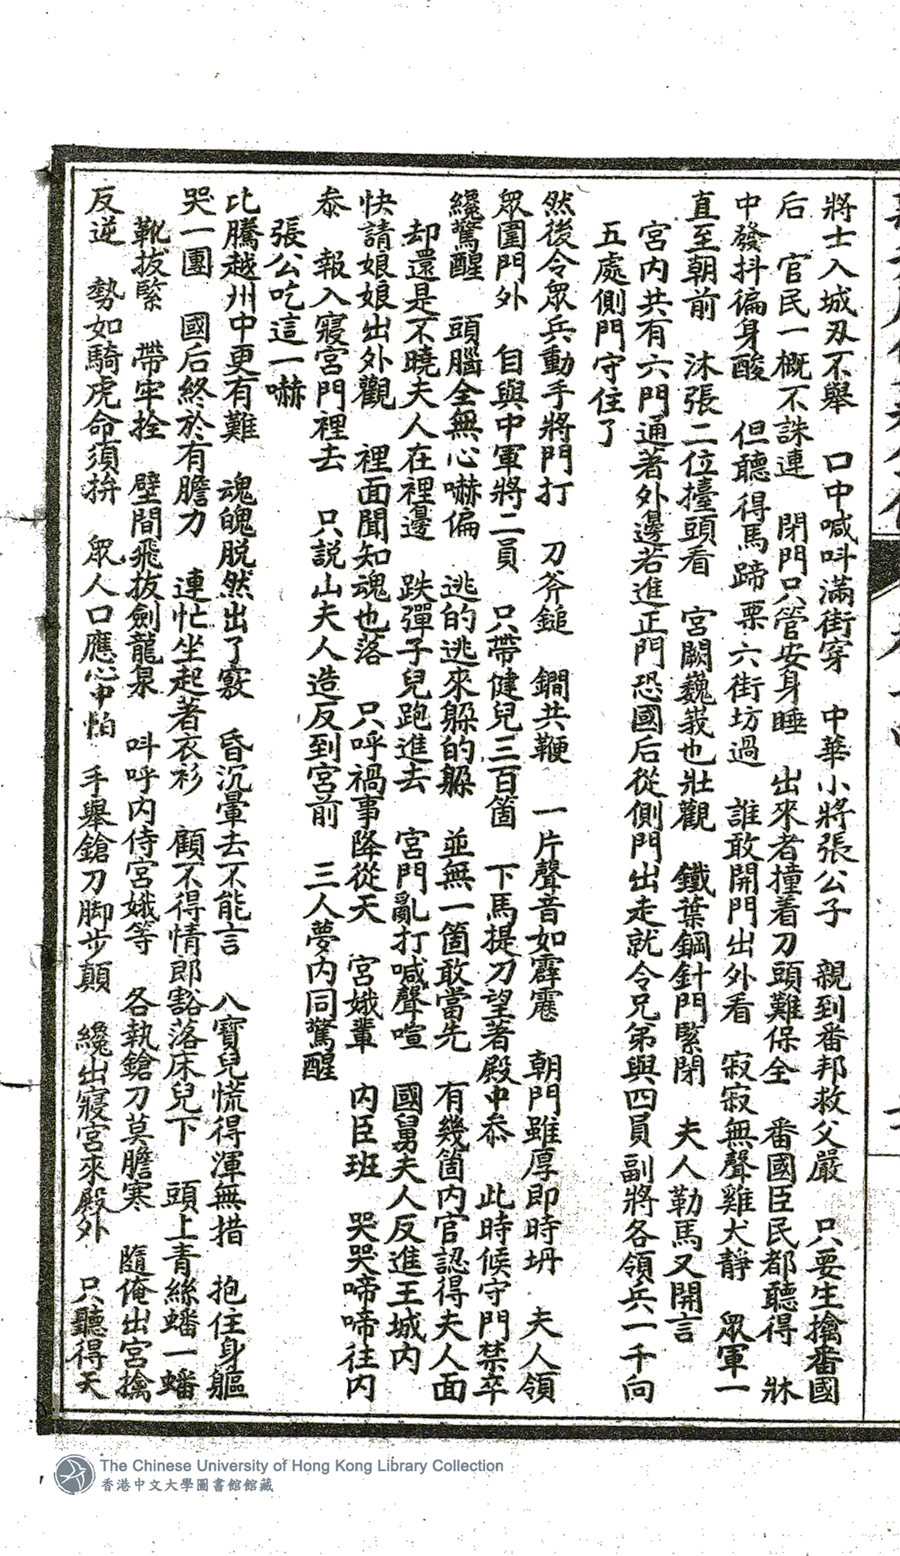 將士入城刄不舉　口中喊呌滿街穿　中華小將張公子　親到番邦救父嚴　只要生擒番國
后　官民一概不誅連　閉門只管安身睡　出來者撞着刀頭難保全　番國臣民都聽得　牀
中發抖徧身酸　但聽得馬蹄栗六街坊過　誰敢開門出外看　寂寂無聲雞犬靜　眾軍一
直至朝前　沐張二位擡頭看　宮闕巍峩也壯觀　鐵葉鋼針門緊閉　夫人勒馬又開言
宮內共有六門通著外邊若進正門恐國后從側門出走就令兄弟與四員副將各領兵一千向
五處側門守住了
然後令眾兵動手將門打　刀斧鎚　鐧共鞭　一片聲音如霹靂　朝門雖厚即時坍　夫人領
眾圍門外　自與中軍將二員　只帶健兒三百箇　下馬提刀望著殿中叅　此時候守門禁卒
纔驚醒　頭腦全無心嚇偏　逃的逃來躲的躲　並無一箇敢當先　有幾箇內官認得夫人面
却還是不曉夫人在裡邊　跌彈子兒跑進去　宮門亂打喊聲喧　國舅夫人反進王城內
快請娘娘出外觀　裡面聞知魂也落　只呼禍事降從天　宮娥輩　內臣班　哭哭啼啼往內
叅　報入寢宮門裡去　只說山夫人造反到宮前　三人夢內同驚醒
張公吃這一嚇
比騰越州中更有難　魂魄脫然出了竅　昏沉暈去不能言　八寶兒慌得渾無措　抱住身軀
哭一團　國后終於有膽力　連忙坐起著衣衫　顧不得情郎豁落床兒下　頭上青絲蟠一蟠
靴拔緊　帶牢拴　壁間飛拔劍龍泉　呌呼內侍宮娥等　各執鎗刀莫膽寒　隨俺出宮擒
反逆　勢如騎虎命須拚　眾人口應心中怕　手舉鎗刀脚步顛　纔出寢宮來殿外　只聽得天
The Chinese University of Hong Kong Library Collection
香港中文大學圖書館館藏